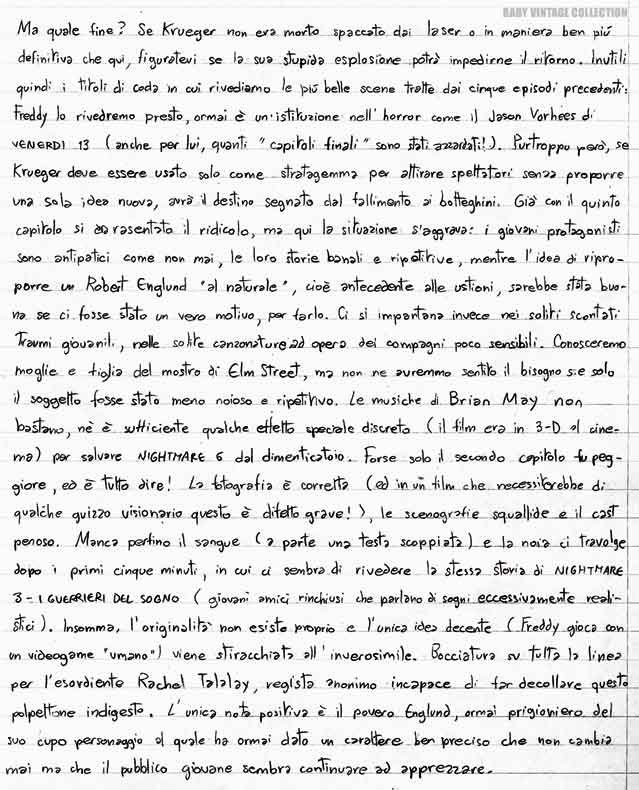 BABY VINTAGE COLLECTION
Ma quale fine? Se Krueger non era morto spaccato dai laser o in maniera ben più
definitiva che qui, figuratevi se la sua stupida esplosione potrà impedirne il ritorno. Inutili
quindi i titoli di coda in cui rivediamo le più belle scene tratte dai cinque episodi precedenti:
Freddy lo rivedremo presto, ormai è un'istituzione nell'horror come il Jason Vorhees di
VENERDI 13 (anche per lui, quanti "capitoli finali" sono stati azzardati!). Purtroppo però, se
Krueger deve essere usato solo come stratagemma per attirare spettatori senza proporre
una sola idea nuova, avrà il destino segnato dal fallimento ai botteghini. Già con il quinto
capitolo si rasentato il ridicolo, ma qui la situazione s'aggrava: i giovani protagonisti
sono antipatici come non mai, le loro storie banali e ripetitive, mentre l'idea di ripro-
porre un Robert Englund "al naturale", cioè antecedente alle ustioni, sarebbe stata buo-
na se ci fosse stato un vero motivo, per farlo. Ci si impantana invece nei soliti scontati
Traumi giovanili, nelle solite canzonature ad opera dei compagni poco sensibili. Conosceremo
moglie e figlia del mostro di Elm Street, ma non ne avremmo sentito il bisogno se solo
il soggetto fosse stato meno noioso e ripetitivo. Le musiche di Brian May non
bastano, nè è sufficiente qualche effetto speciale discreto (il film era in 3-D al cine-
ma) per salvare NIGHTMARE 6 dal dimenticatoio. Forse solo il secondo capitolo fu peg-
giore, ed è tutto dire! La fotografia è corretta (ed in un film che necessiterebbe di
qualche guizzo visionario questo è difetto grave!), le scenografie squallide e il cast
penoso. Manca perfino il sangue (a parte una testa scoppiata) e la noia ci travolge
dopo i primi cinque minuti, in cui ci sembra di rivedere la stessa storia di NIGHTMARE
3 - I GUERRIERI DEL SOGNO (giovani amici rinchiusi che parlano di sogni eccessivamente reali-
stici). Insomma, l'originalità non esiste proprio e l'unica idea decente (Freddy gioca con
un videogame "umano") viene stiracchiata all'inverosimile. Bocciatura su tutta la linea
per l'esordiente Rachel Talalay, regista anonimo incapace di far decollare questo
polpettone indigesto. L'unica nota positiva è il povero Englund, ormai prigioniero del
suo cupo personaggio al quale ha ormai dato un carattere ben preciso che non cambia
mai ma che il pubblico giovane sembra continuare ad apprezzare.